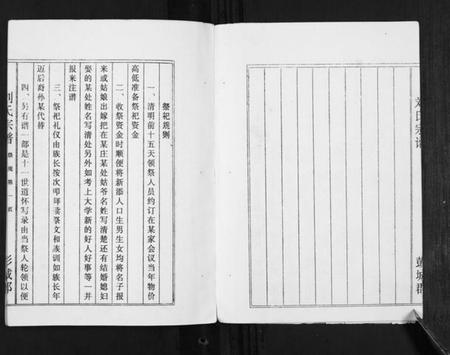 祭祀规则
一、清明前十五天领祭人员约订在某家会议当年物价
高低准备祭祀资金
二、收祭资金时顺便将新添人口生男生女均将名子报
来或姑娘出嫁把在某庄某处姑爷名姓写清楚还有结婚媳妇
娶的某处姓名写清处另外如考上大学新的好人好事等一并
报来注谱
三、祭祀礼仪由族长按次叩拜读祭文和族训如族长年
迈后裔孙某代替
四、另有谱一部是十一世道怀写录由当祭人轮领以便
刘氏宗谱
彭城郡
刘氏宗谱
彭城郡